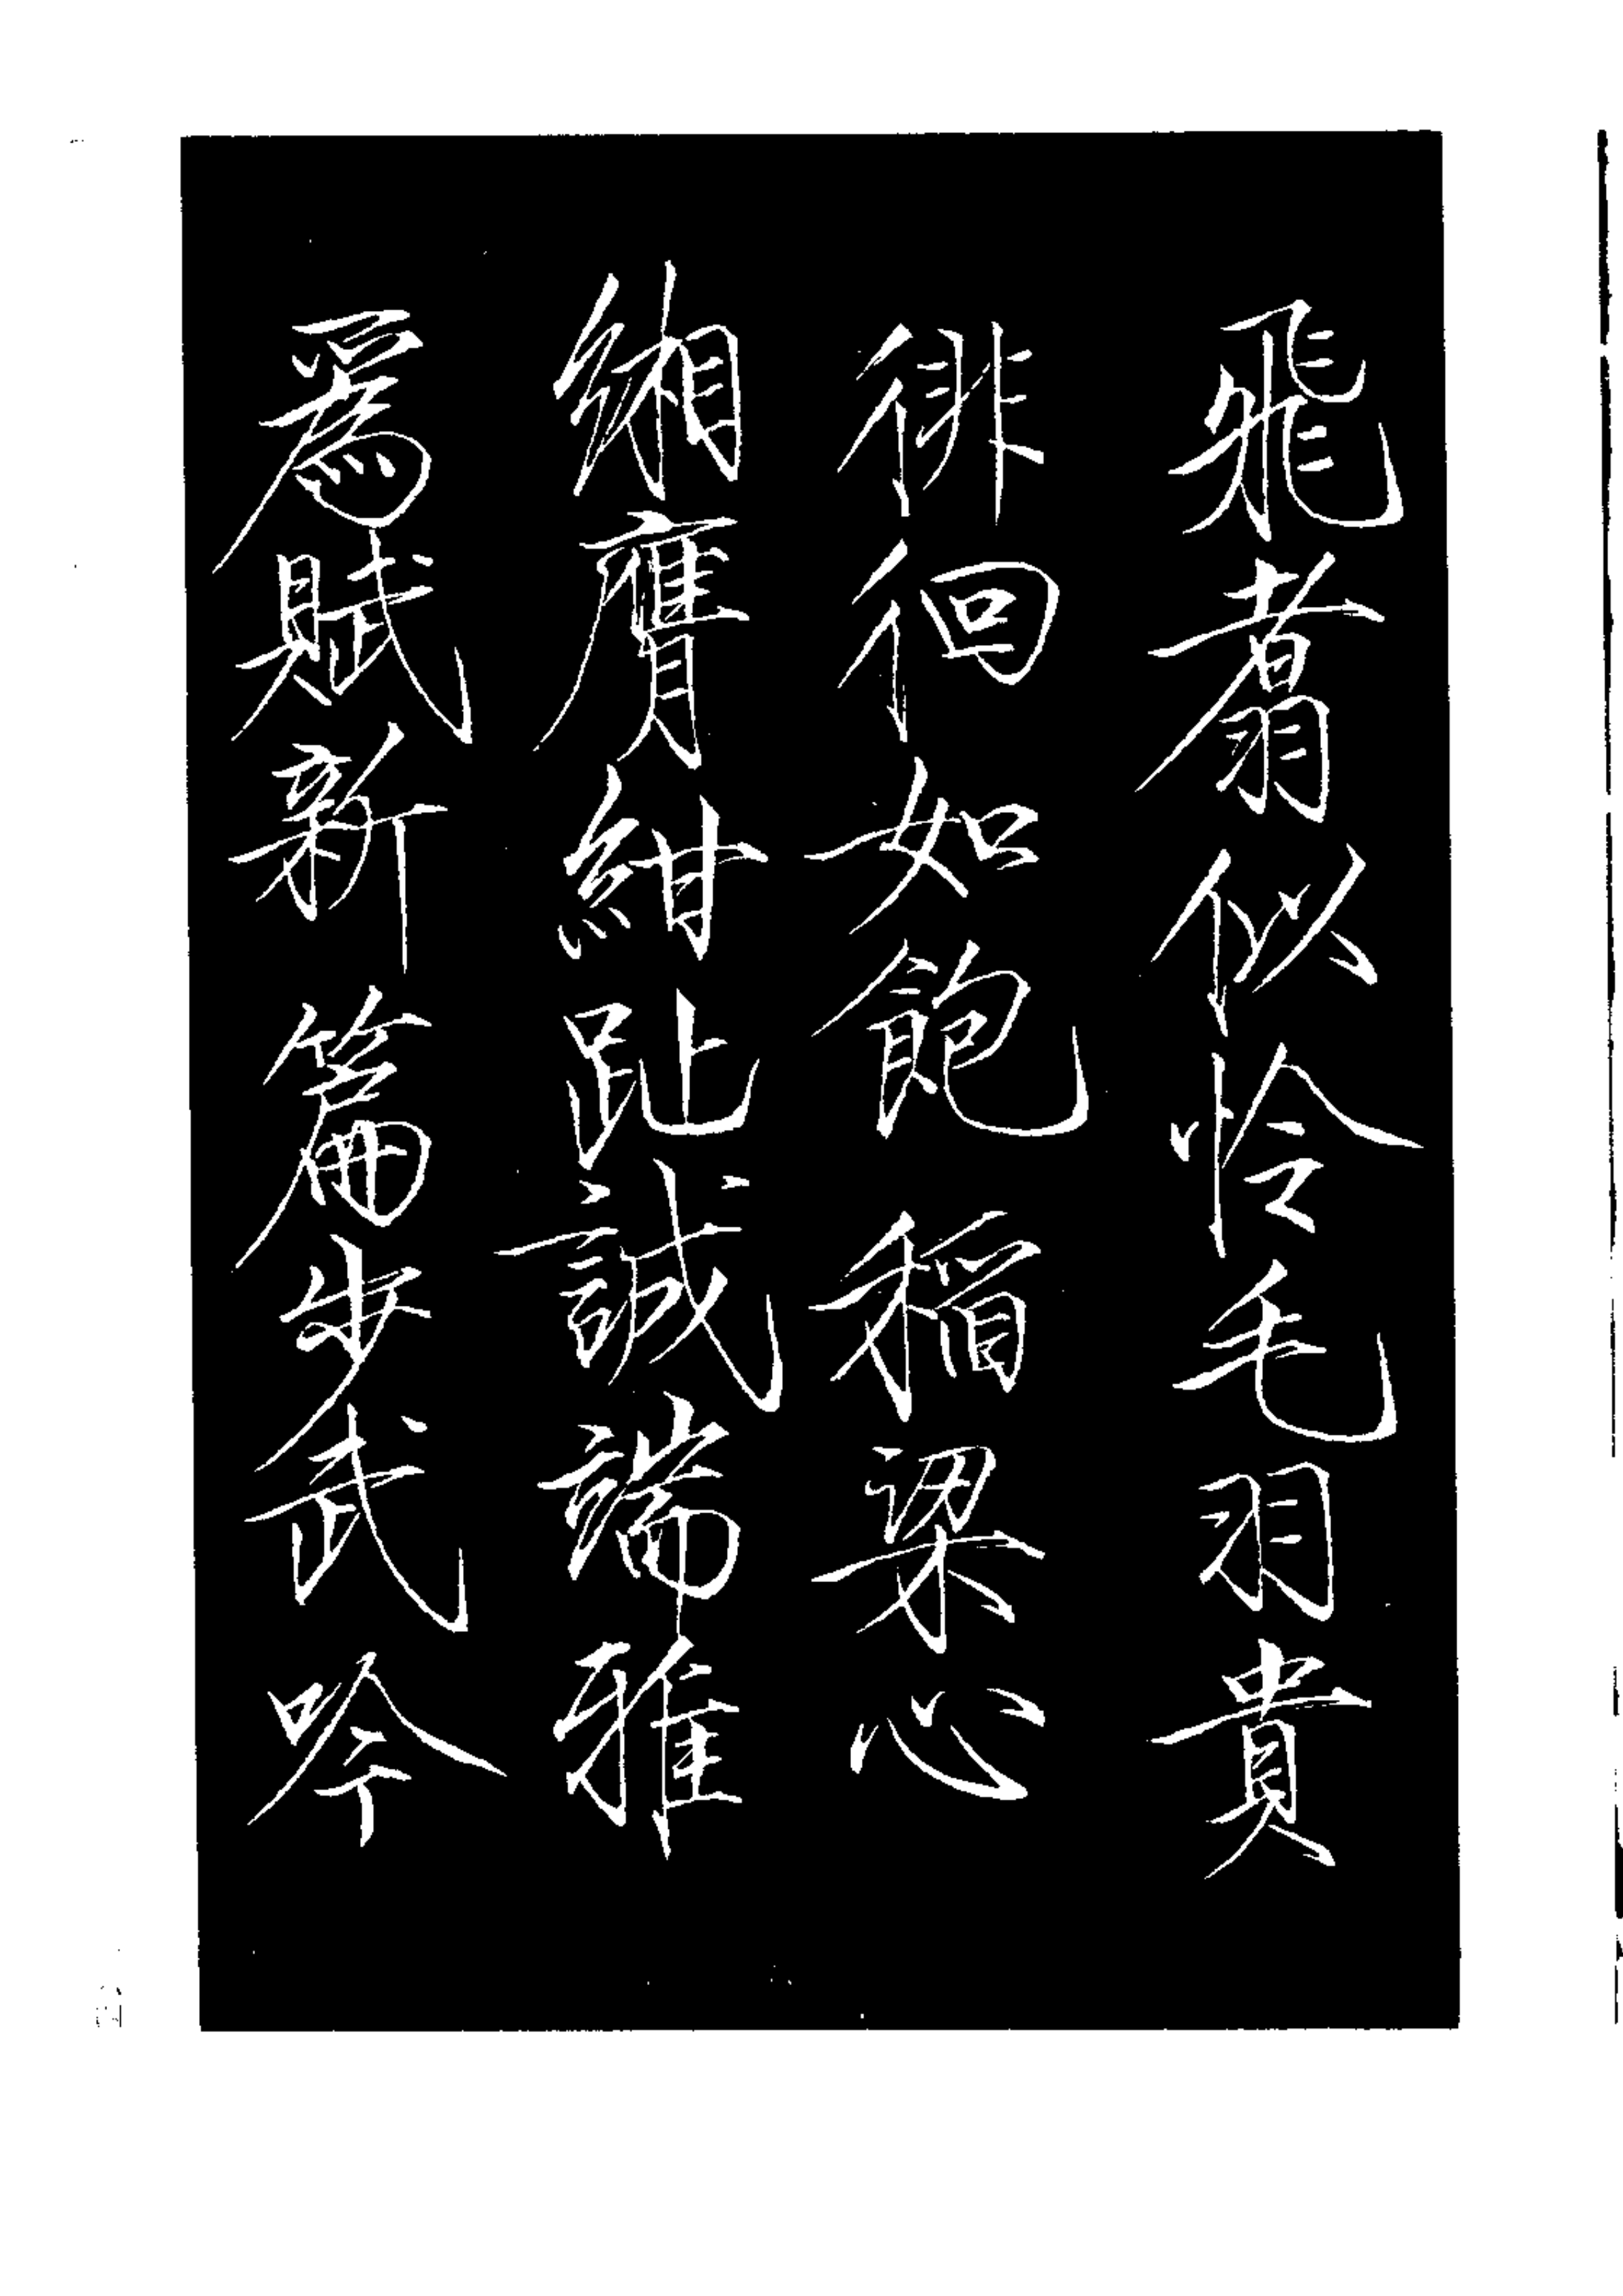 飛翥似怜毛羽貴
徘徊如飽稻粱心
緗膺紺趾誠端雅
爲賦新篇步武吟